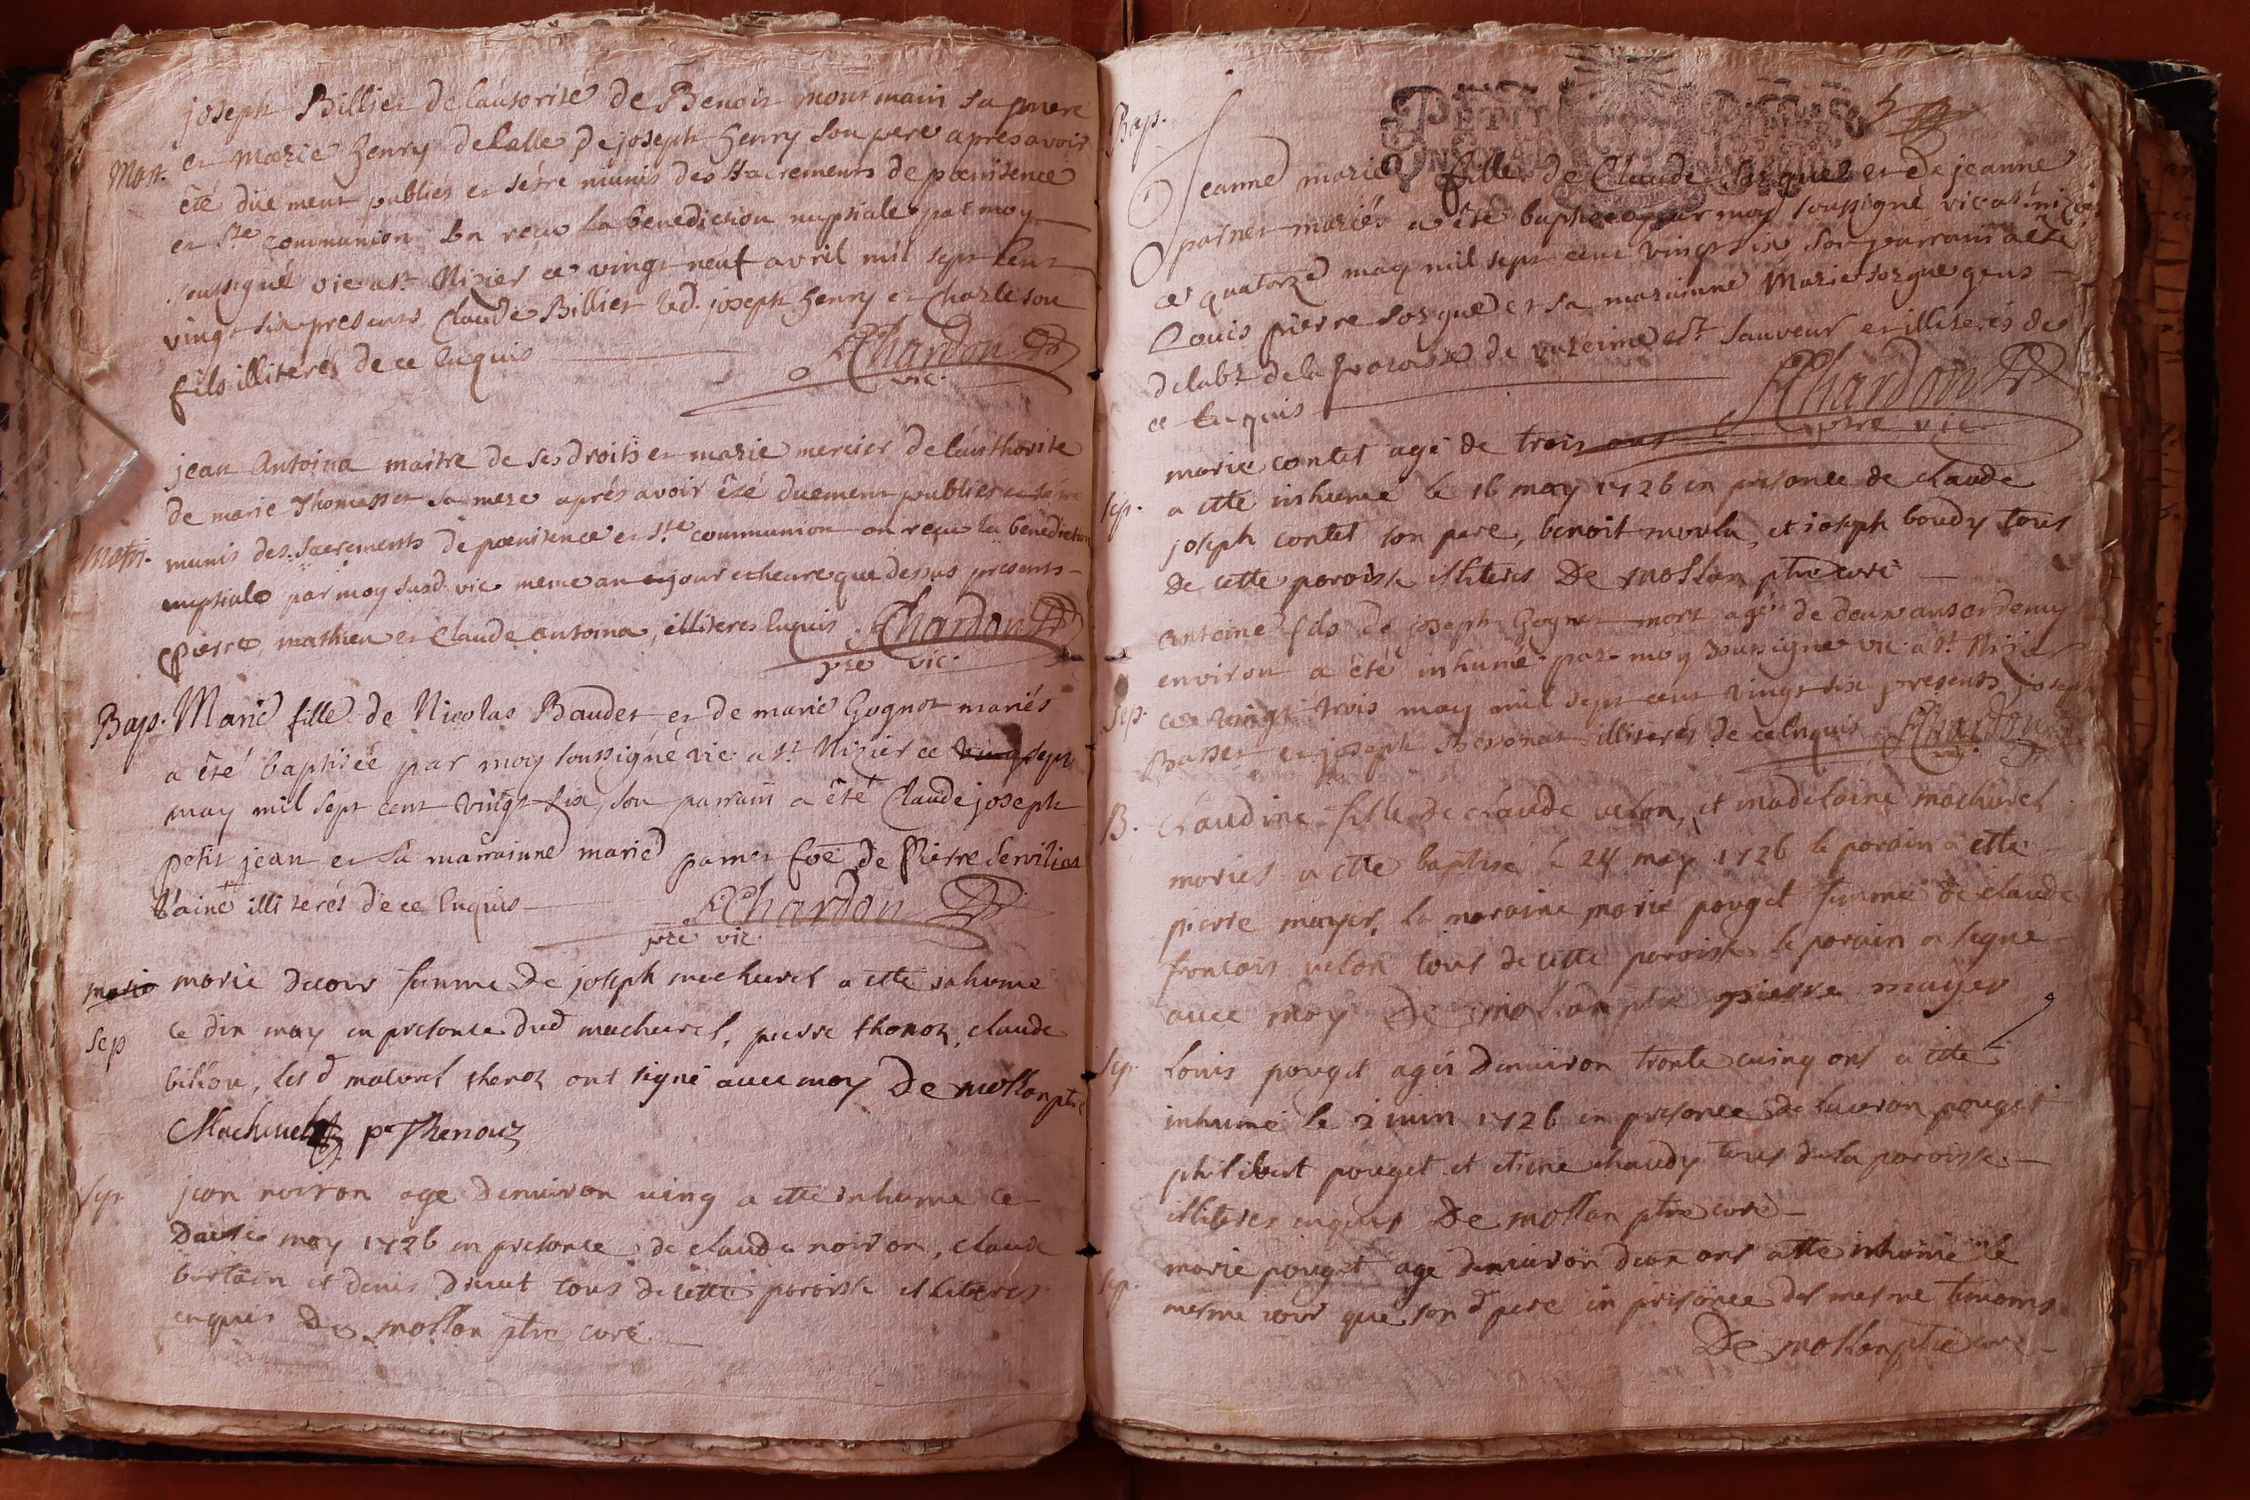 joseph Billiet de lautorité de Benoit
Mar. et marie henry de celle de joseph henry son pere apres avoir
été düement publiés et sétre munis des Sacrements de poenitence
et Ste communion on reçu la benediction nuptiale par moy
soussigné vic a St Nizier ce vingt neuf avril mil sept cent
vingt six presents Claude Billiet led. joseph henry et Charle son
fils illiterés de ce Enquis
Chardon
vic.
jean Antoina maitre de ses droits et marie mercier de lauthorite
de marie Thomasset sa mere aprés avoir été duement publies et
Matri. munis des Sacrements de poenitence et Ste communion on reçu la benediction
nuptiale par moy susd. vic meme an et jour et heure que dessus presents
pierre mathieu et Claude antoina, illiteres Enquis Chardon
pre vic.
Bap. Marie fille de Nicolas Baudet et de marie Gognot mariés
a été baptisée par moy soussigné vic a St Nizier ce sept
may mil sept cent vingt six, son parrain a été Claude joseph
petit jean et sa marrainne marie pamet fõe de Pierre
l'ainé illiterés de ce Enquis
Chardon
pre vic
marie decour famme de joseph machurel a ette inhume
Sep ce dix may en presence dud machurel, pierre thenoz, claude
billion, les d machurel thenoz ont signé avec moy De mollan ptre
Machurel pe Thenouz
Sep jean noiron age denviron ving a ette inhume ce
may 1726 en presence de claude noiron, claude
et denis tous de cette paroisse illiteres
enquis De mollan ptre curé
Bap.
Jeanne marie fille de Claude Sorguet et de jeanne
parnet mariés a été baptisée par moy soussigné vic a St nizier
ce quatorze may mil sept cent vingt six, son parrain a été
Louis pierre Sorgue et sa marainne Marie Sorgue gens
de la paroisse de St Sauveur et illiterés de
ce Enquis
Chardon
pre vic
marie contet agé de trois ans
Sep. a ette inhume le 16 may 1726 en presence de claude
joseph contet son pere, benoit et joseph boudy tous
de cette paroisse illiteres De mollan ptre curé
Antoine fils de joseph Gognet mort agé de deux ans et demy
environ a été inhumé par moy soussigné vic a St Nizier
Sep. ce vingt trois may mil sept cent vingt six presents joseph
Basset et joseph illiterés de ce Enquis Chardon
B. claudine fille de claude velon, et madelaine machurel
mariés a ette baptisé le 24 may 1726 le parain a ette
pierre mayer, la maraine marie pouget famme de claude
francois velon tous de cette paroisse le parain a signe
avec moy De mollan ptre pierre mayer
Sep. Louis pouget agés denviron trente cinq ans a ette
inhume le 2 iuin 1726 en presence de pouget
philibert pouget et chaudy tous de la paroisse
illiteres enquis De mollan ptre curé
Sep. marie pouget age denviron deux ans a ette inhume le
mesme iour que son d pere en presence des mesme temoins
De mollan ptre curé